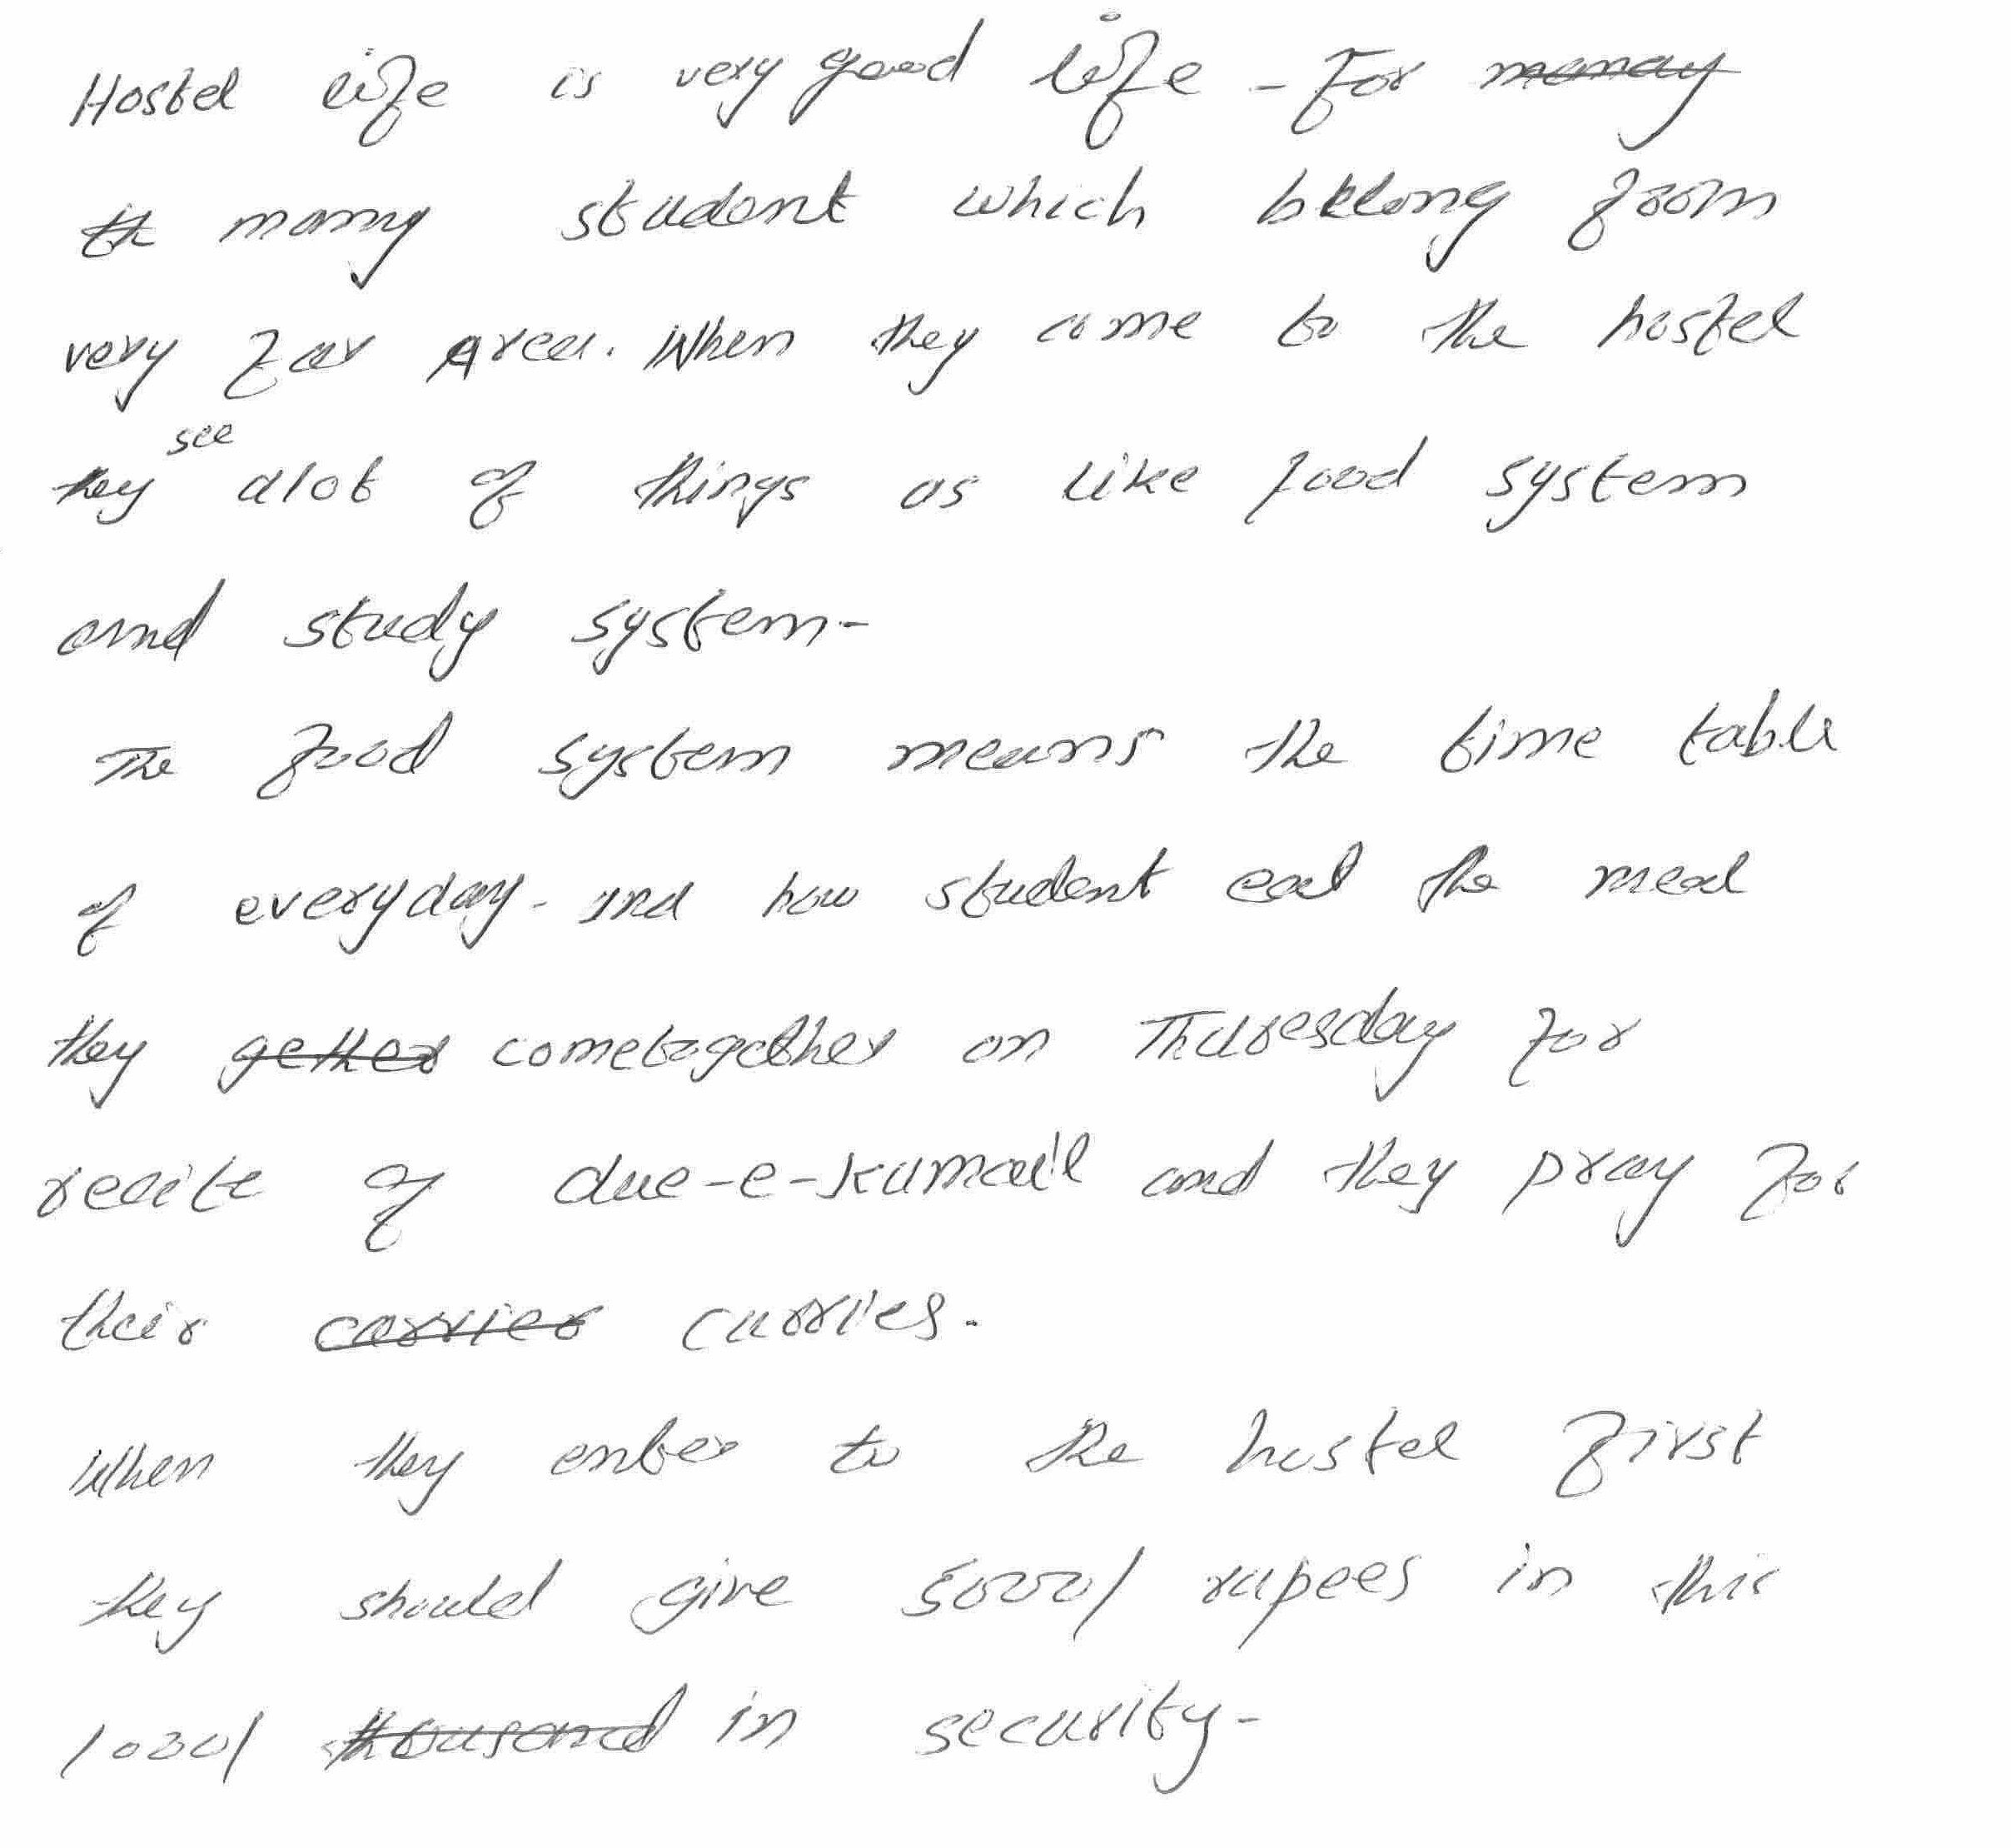 Hostel life is very good life - For manay
th many student which belong from
very far Area. When they come to the hostel
they see alot of things as like food system
and study system-
The food system means the time table
of everyday- and how student eat the meal
they gether cometogether on Thuresday for
recite of due-e-kumail and they pray for
their carrier carries.
When they enter to the hostel first
they should give 5000/ rupees in this
1000/ thousand in security-